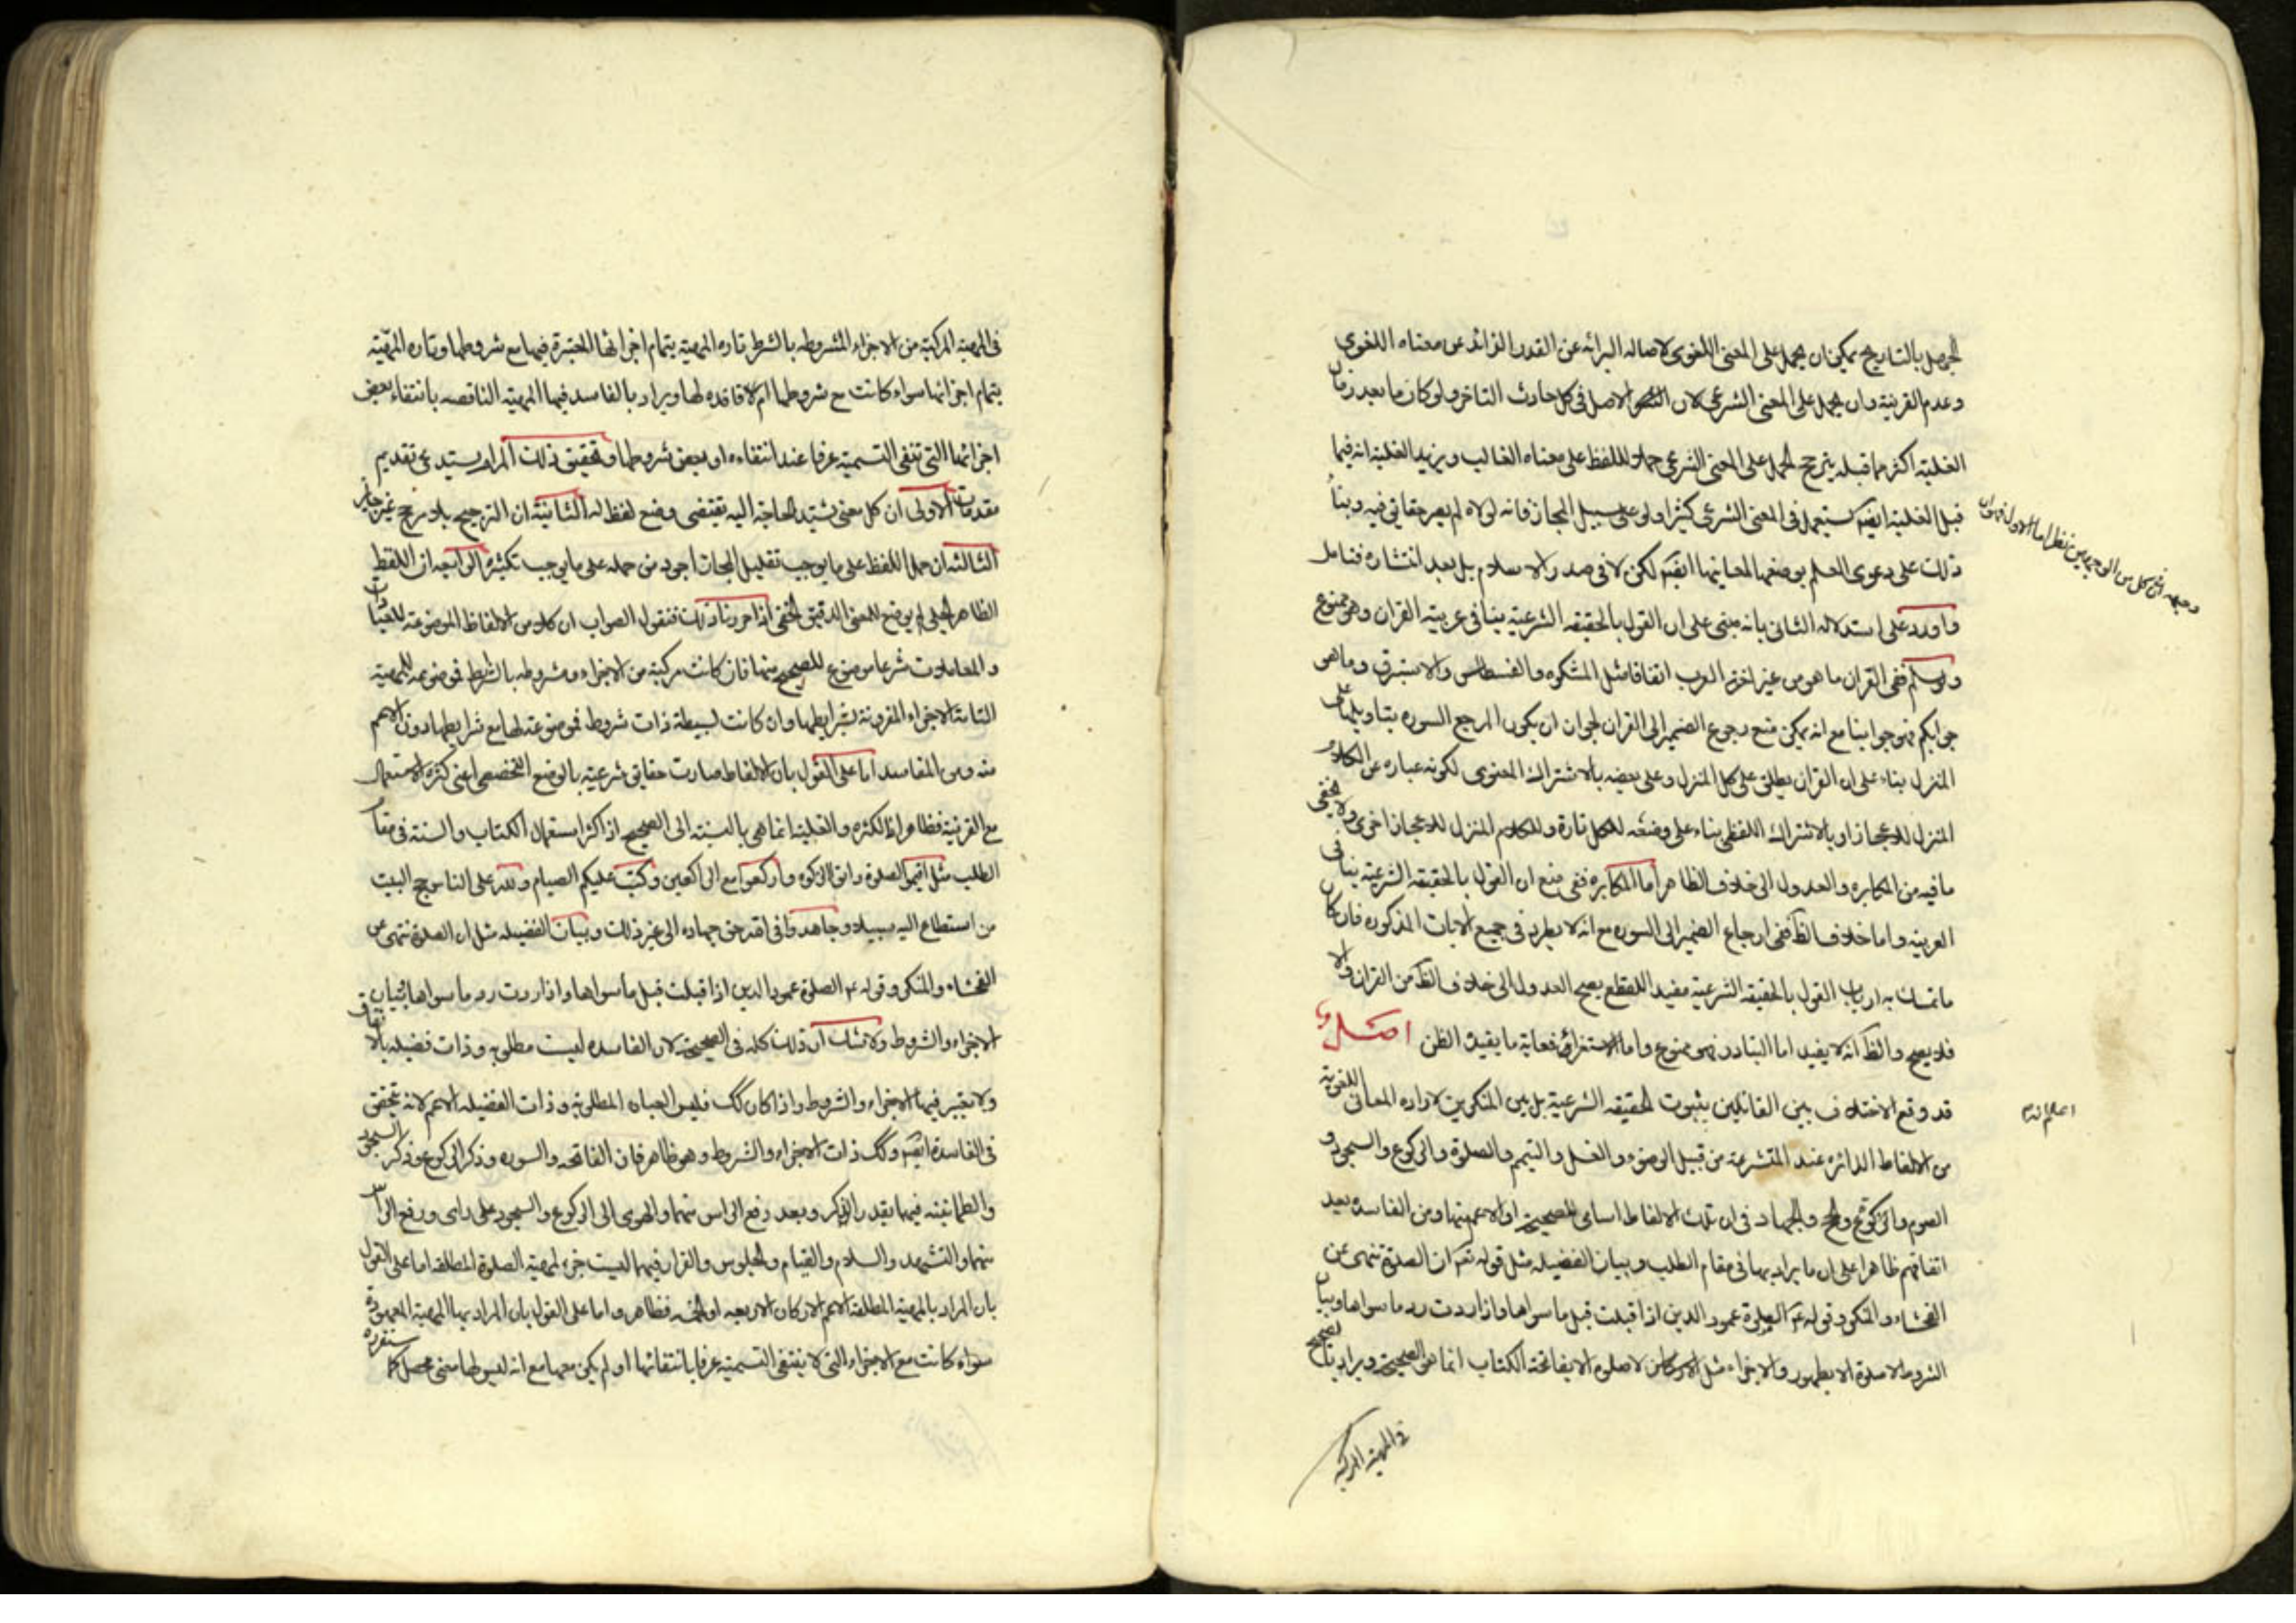 الجهل بالتاريخ يمكن ان يحمل على المعنى اللغوى لاصاله البرائه عن القدر الزائد عن معناه اللغوي
وعدم القرينة وان يحمل على المعنى الشرعى لان الاصل فى كل حادث التاخر ولو كان ما بعد زمان
الغلبة اكثر مما قبله يترجح الحمل على المعنى الشرعى حملا للفظ على معناه الغالب ويزيد الغلبة انه فيما
قبل الغلبة ايضا يستعمل فى المعنى الشرعى كثيرا ولو على سبيل المجاز فانه لولاه لم يصر حقايق فيه وبناء
ذلك على دعوى العلم بوضعها لمعانيها ايضا لكن لا فى صدر الاسلام بل بعد انتشاره فتامل
واورد على استدلاله الثانى بانه مبنى على ان القول بالحقيقه الشرعية ينافى عربية القران وهو ممنوع
ولو سلم ففى القران ما هو من غير لغة العرب اتفاقا مثل المشكوه والقسطاس والاستبرق وما هو
جوابكم فهو جوابنا مع انه يمكن منع رجوع الضمير الى القران لجواز ان يكون المرجع السوره بتاويلها على
المنزل بناء على ان القران يطلق على كل المنزل وعلى بعضه بالاشتراك المعنوى لكونه عباره عن الكلام
المنزل للاعجاز او بالاشتراك اللفظى بناء على وضعه للكل تارة وللكلام المنزل للاعجاز اخرى ولا يخفى
ما فيه من المكابره والعدول الى خلاف الظاهر اما المكابره ففى منع ان القول بالحقيقه الشرعية ينافى
العربيه واما خلاف الظ ففى ارجاع الضمير الى السوره مع انه لا يطرد فى جميع الايات المذكوره فان كان
ما تمسك به ارباب القول بالحقيقه الشرعية مفيد للقطع يصح العدول الى خلاف الظ من القران والا
فلا يصح والظ انه لا يفيد اما التبادر فهو ممنوع واما الاستقراء فغاية ما يفيد الظن اصل
قد وقع الاختلاف بين القائلين بثبوت الحقيقه الشرعية بل بين المنكرين لاراده المعانى اللغوية
من الالفاظ الدائره عند المتشرعه من قبيل الوضوء والغسل والتيمم والصلوة والركوع والسجود و
الصوم والزكوة والحج والجهاد فى ان تلك الالفاظ اسامى للصحيحة او الاعم منها ومن الفاسده بعد
اتفاقهم ظاهرا على ان ما يراد بها فى مقام الطلب وبيان الفضيله مثل قوله تعم ان الصلوة تنهى عن
الفحشاء والمنكر وقوله عم الصلوة عمود الدين اذا قبلت قبل ما سواها واذا ردت رد ما سواها وبيان
الشروط لا صلوة الا بطهور والاجزاء مثل لا صلوه الا بفاتحة الكتاب انما هى الصحيحة ويراد بالصحيح
فى المهية المركبة
اعلم انه
فى المهية المركبة من الاجزاء المشروطه بالشرط تاره المهية بتمام اجزائها المعتبرة فيها مع شروطها وتاره المهية
بتمام اجزائها سواء كانت مع شروطها ام لا فاقده لها ويراد بالفاسد فيها المهية الناقصه بانتفاء بعض
اجزائها التى تنفى التسمية عرفا عند انتفاءه او بعض شروطها وتحقيق ذلك المرام يستدعى تقديم
مقدمات الاولى ان كل معنى يشتد الحاجة اليه يقتضى وضع لفظ له الثانية ان الترجيح بلا مرجح غير جايز
الثالثه ان حمل اللفظ على ما يوجب تقليل المجازات اجود من حمله على ما يوجب تكثيره الرابعه ان اللفظ
الظاهر الجلى لم يوضع للمعنى الدقيق الخفى اذا عرفت ذلك فنقول الصواب ان كلا من الالفاظ الموضوعة للعبادات
والمعاملات شرعا موضوع للصحيح منها فان كانت مركبة من الاجزاء ومشروطه بالشرط فموضوعه للمهية
التامة الاجزاء المقرونة بشرايطها وان كانت بسيطة ذات شروط فموضوعة لها مع شرايطها دون الاعم
منه ومن الفاسد اما على القول بان الالفاظ صارت حقايق شرعية بالوضع التخصصى اعنى كثرة الاستعمال
مع القرينة فظاهر اذ الكثره والغلبة انما هى بالنسبة الى الصحيح اذ اكثر استعمال الكتاب والسنة فى مقام
الطلب مثل اقيموا الصلوة واتوا الزكوه واركعوا مع الراكعين وكتب عليكم الصيام ولله على الناس حج البيت
من استطاع اليه سبيلا وجاهدوا فى الله حق جهاده الى غير ذلك وبيان الفضيله مثل ان الصلوة تنهى عن
الفحشاء والمنكر وقوله عم الصلوة عمود الدين اذا قبلت قبل ما سواها واذا ردت رد ما سواها وبيان
الاجزاء والشروط ولا شك ان ذلك كله فى الصحيحة لان الفاسده ليست مطلوبه وذات فضيله بالاتفاق
ولا يعتبر فيها الاجزاء والشروط واذا كان كك فليس العباده المطلوبة وذات الفضيله الاعم لانه يتحقق
فى الفاسدة ايضا وكك ذات الاجزاء والشروط وهو ظاهر فان الفاتحه والسوره وذكر الركوع وذكر السجود
والطمانينه فيهما بقدر الذكر وبعد رفع الراس منهما والهوى الى الركوع والسجود على راى ورفع الراس
منهما والتشهد والسلام والقيام والجلوس والقرار فيهما ليست جزء لمهية الصلوة المطلقه اما على القول
بان المراد بالمهية المطلقة الاعم الاركان الاربعه او الخمسه فظاهر واما على القول بان المراد بها المهية المعهودة
سواء كانت مع الاجزاء التى لا ينتفى التسمية عرفا بانتفائها او لم يكن معها مع انه ليس لها معنى محصل كما ستعرفه